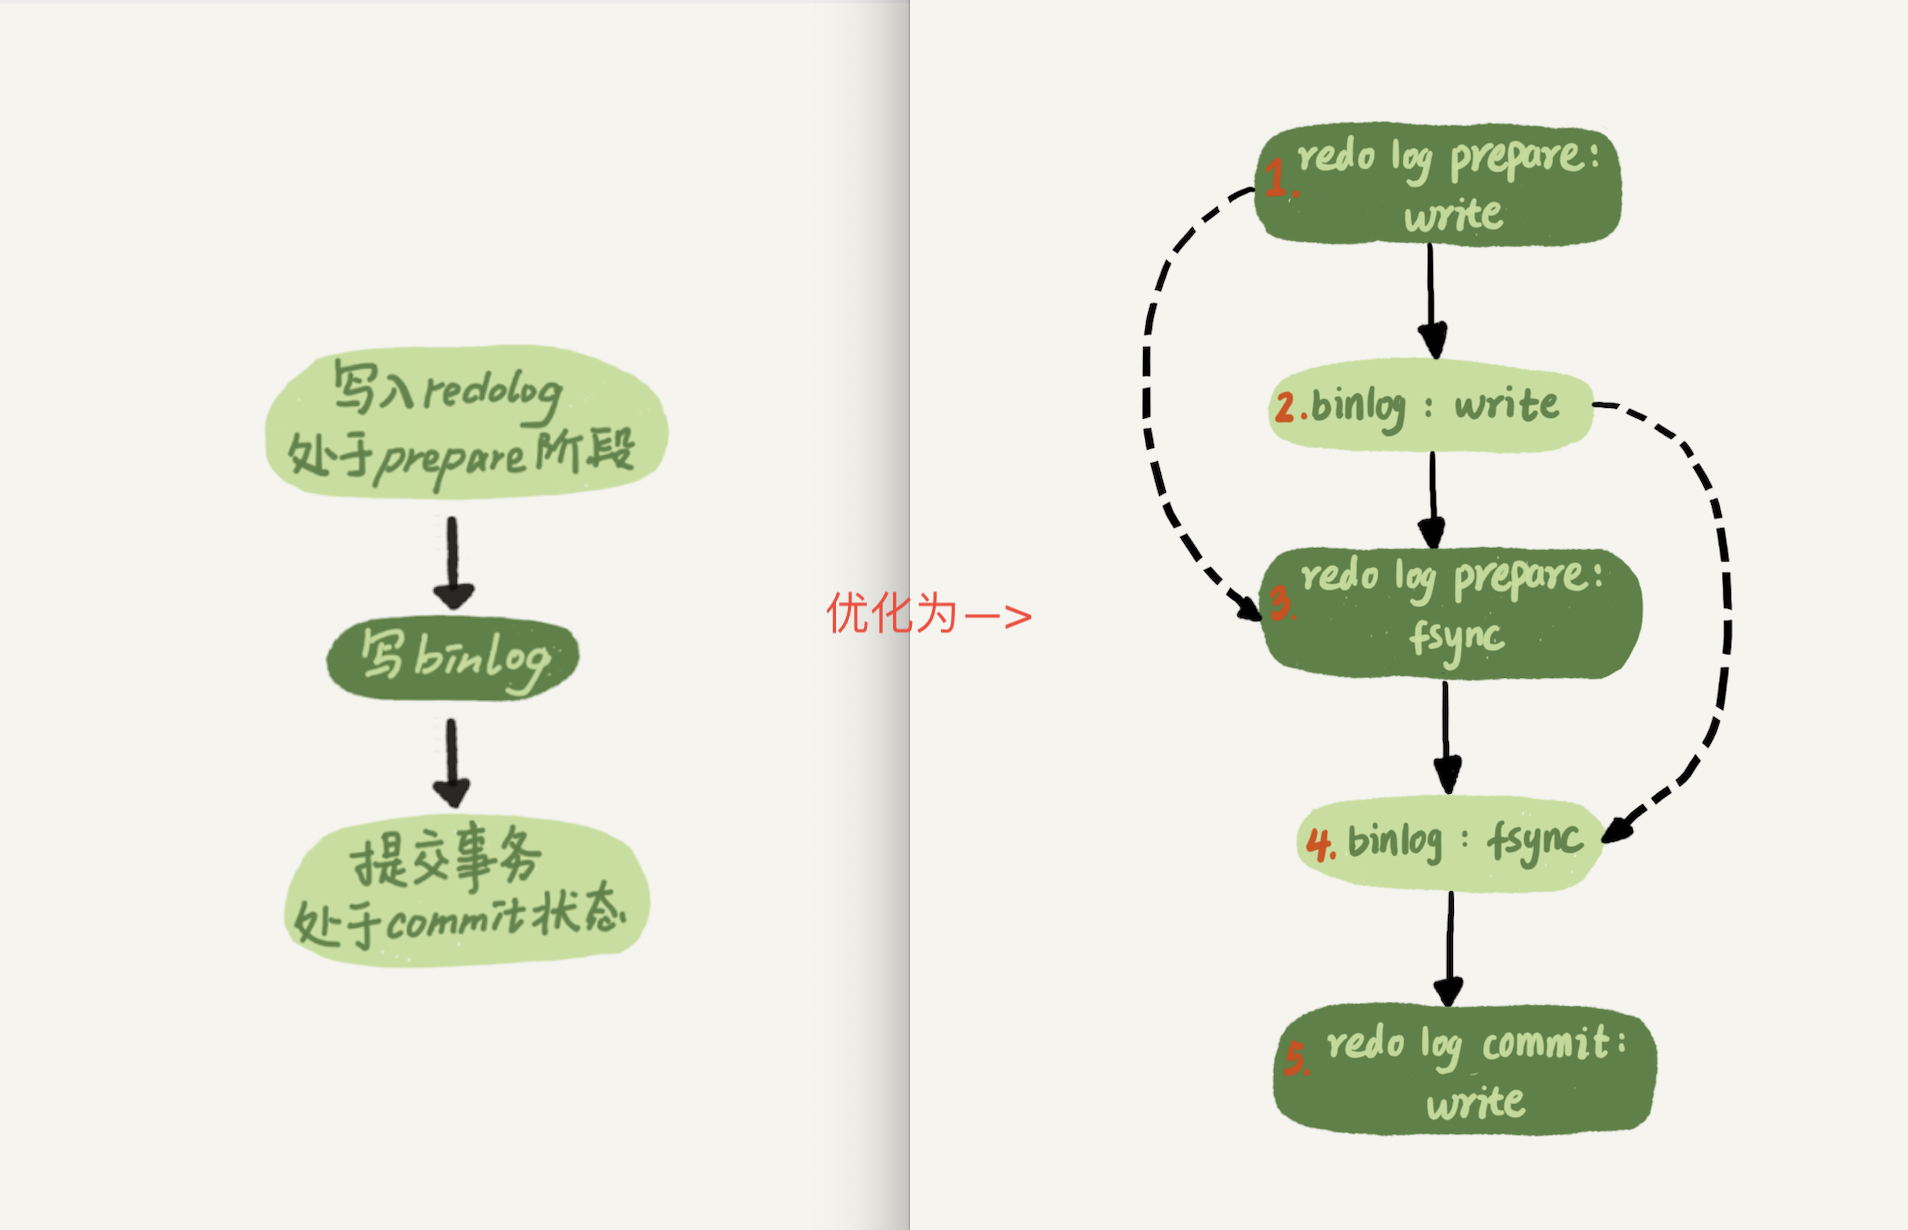 写入redolog
处于prepare阶段
写binlog
提交事务
处于commit状态
优化为—>
1. redo log prepare:
write
2.binlog : write
3. redo log prepare:
fsync
4. binlog : fsync
5. redo log commit:
write